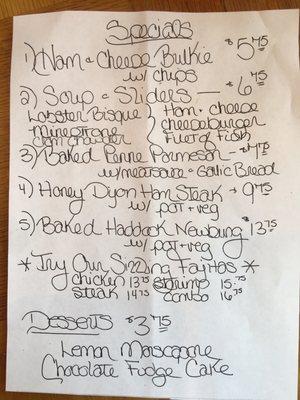 Specials
1) Ham & Cheese Bulkie $5.75
w/ chips
2) Soup & Sliders — $6.75
Lobster Bisque Ham & cheese
Minestrone cheeseburger
Clam chowder Filet of Fish
3) Baked Penne Parmeson - $7.75
w/ meatsauce & Garlic Bread
4) Honey Dijon Ham Steak - 9.75
w/ pot & veg
5) Baked Haddock Newburg $13.75
w/ pot & veg
* Try Our Sizzling Fajitas *
chicken 13.75 shrimp 15.75
steak 14.75 combo 16.75
Desserts $3.75
Lemon Marscapone
Chocolate Fudge Cake